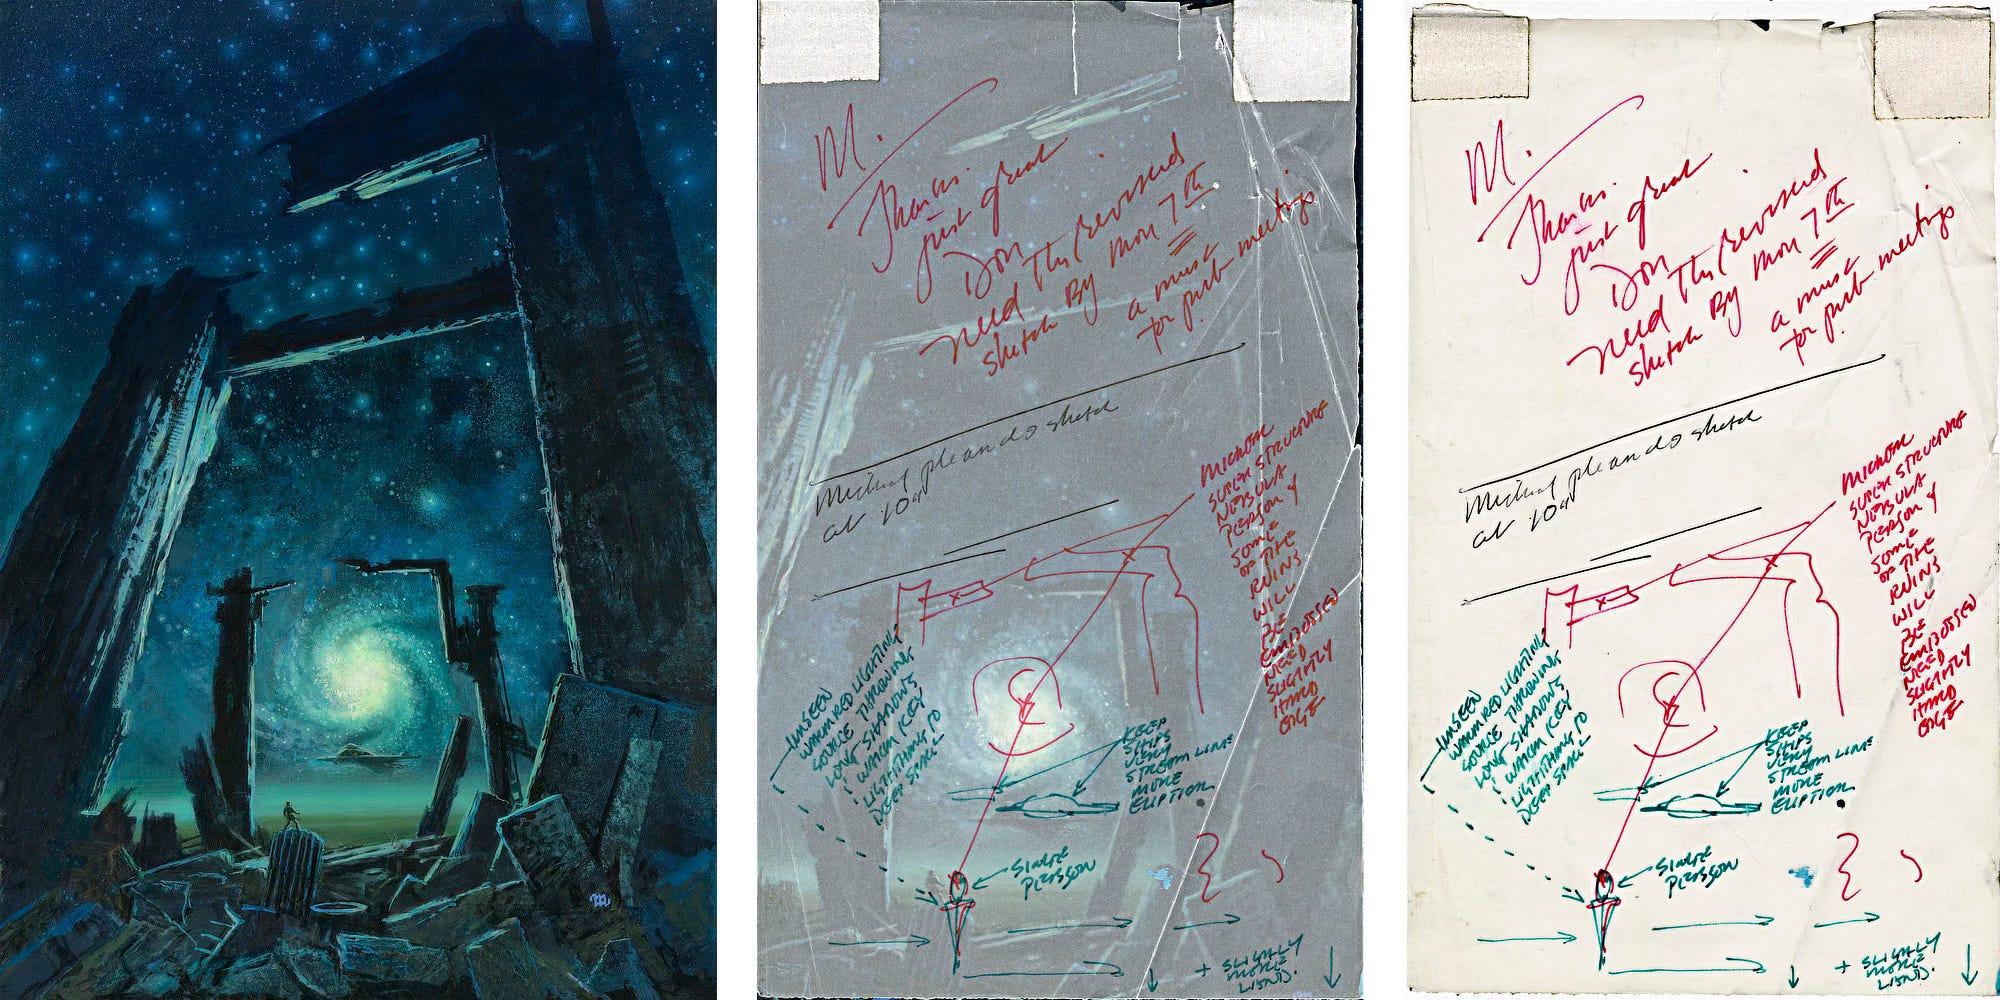 M.
Thanks.
just great
Don
need This revised
sketch By Mon 7th
a must
for pub meetings
Michael do sketch
at
MICHAEL
SUPER STRUCTURE
NEBULA
PERSON &
SOME
OF THE
RUINS
WILL
BE
EMBOSSED
NEED
SLIGHTLY
HARD
EDGE
UNSEEN
WARM RED LIGHTING
SOURCE THROWING
LONG SHADOWS
WARM KEY
LIGHTING TO
DEEP SPACE
KEEP
SHIPS
VERY
STREAM LINE
MORE
SINGLE
PERSON
+ SLIGHTLY
MORE
M.
Thanks.
just great
Don
need This revised
sketch By Mon 7th
a must
for pub meetings
Michael do sketch
at
MICHAEL
SUPER STRUCTURE
NEBULA
PERSON &
SOME
OF THE
RUINS
WILL
BE
EMBOSSED
NEED
SLIGHTLY
HARD
EDGE
UNSEEN
WARM RED LIGHTING
SOURCE THROWING
LONG SHADOWS
WARM KEY
LIGHTING TO
DEEP SPACE
KEEP
SHIPS
VERY
STREAM LINE
MORE
SINGLE
PERSON
+ SLIGHTLY
MORE